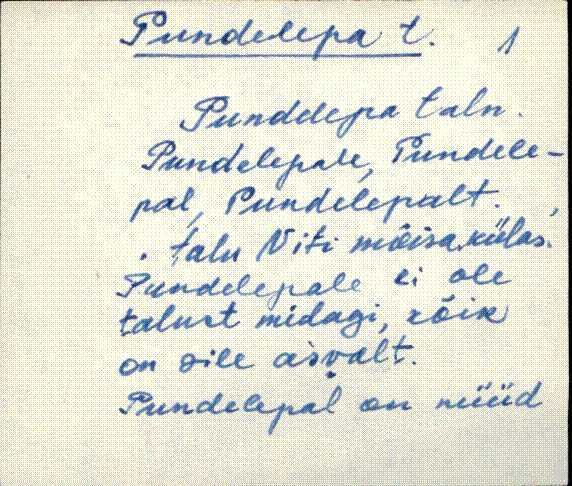 Pundelepa t. 1
Pundelepa talu.
Pundelepale, Pundele-
pal, Pundelepalt.
talu Niti mõisa külas.
Pundelepale ei ole
talust midagi, kõik
on sile asvalt.
Pundelepal on nüüd